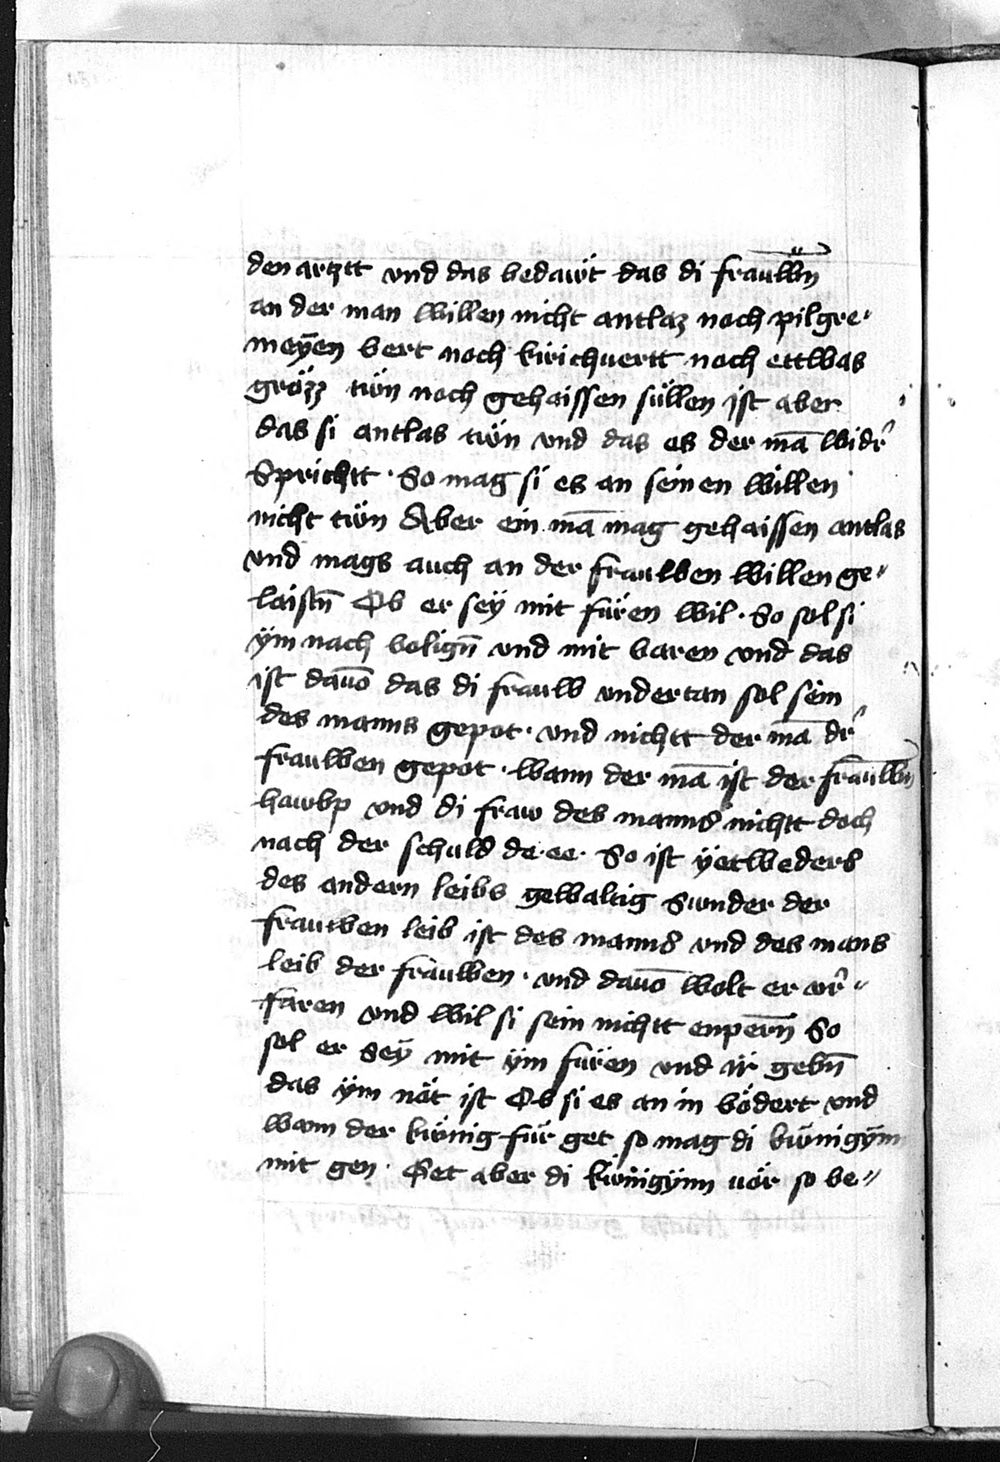 den artztt vnd das bedawt das di frauwn̄
an der man willen nicht antlaz noch pilgre⸗
meӱen vert noch kirichvertt noch ettwas
grözz tün noch gehaissen süllen ist aber
das si antlas tün vnd das es der mā widr̄
Sprichtt · So mag si es an seinen willen
nicht tün Aber ein mā mag gehaissen antlas
vnd mags auch an der frauwen willen ge⸗
laistn̄ Ob er seӱ mit füren wil · So sol si
ӱm nach volign̄ vnd mit varen vnd das
ist dauō das di frauw vndertan sol sein
des manns gepot · vnd nichtt der mā dr̄
frauwen gepot · wann der mā ist der frauwn̄
hawbp vnd di fraw des manns nichtt doch
nach der schuld de · ee · So ist ӱetweders
des andern leibs gewaltig Sunder der
frauwen leib ist des manns vnd des mans
leib der frauwen · vnd dauō wolt er vr̄⸗
faren vnd wil si sein nichtt enpern̄ So
sol er seӱ mit ӱm füren vnd ir gebn̄
das ӱm nöt ist Ob si es an in vödert vnd
wann der künig für get so mag di künigӱnn
mit gen · Get aber di künigӱnn uör so be⸗